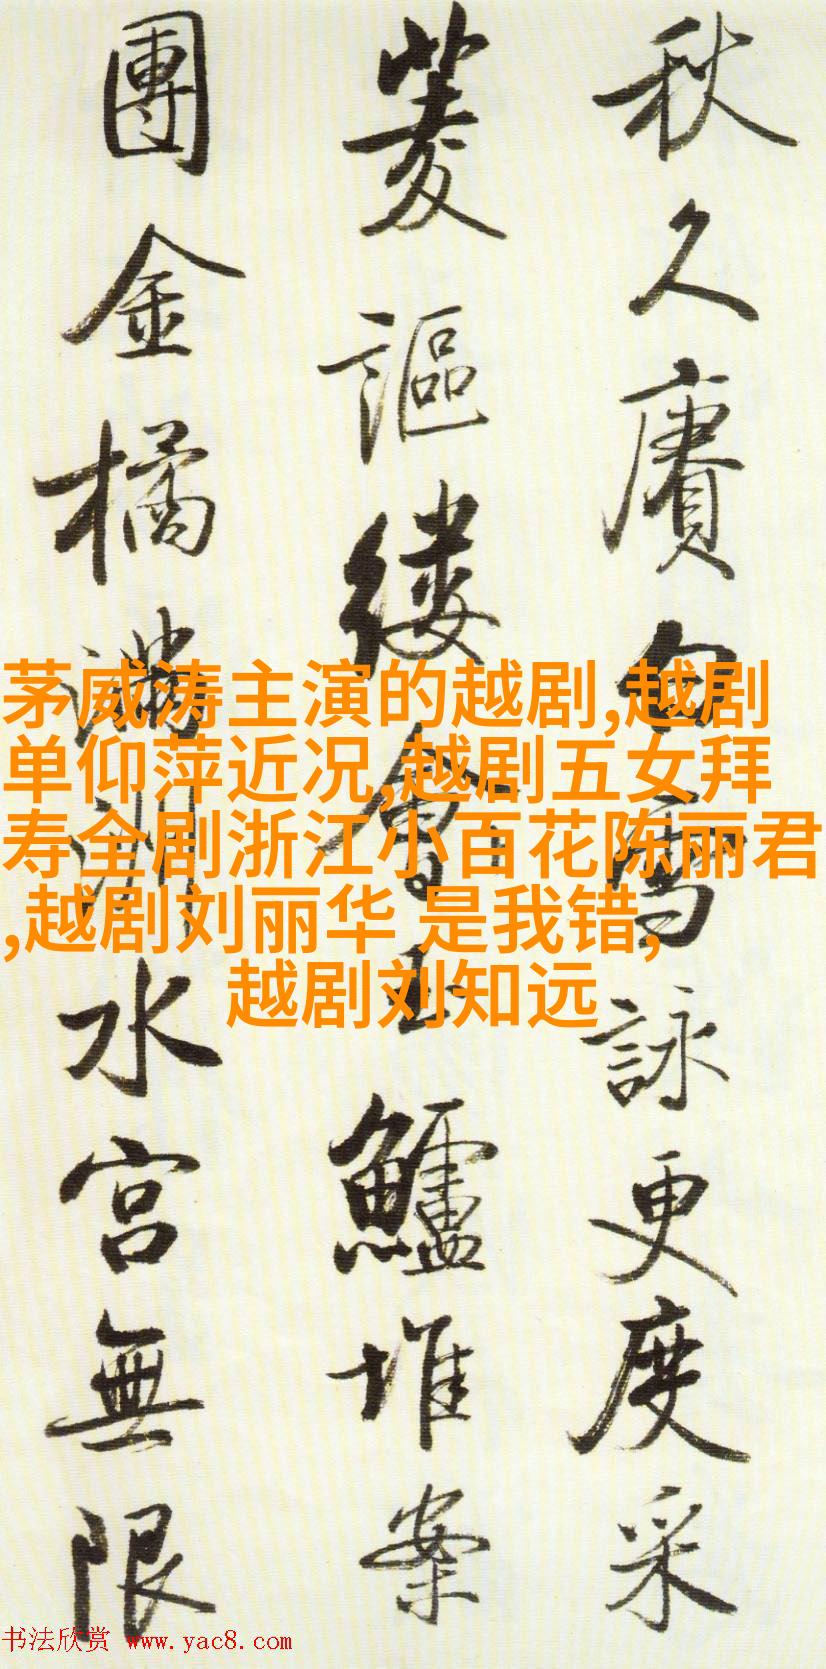 秋久賡白雪詠更度采
菱謳縷會玉鱸堆案
團金橘滿洲水宮無限
茅威涛主演的越剧,越剧
单仰萍近况,越剧五女拜
寿全剧浙江小百花陈丽君
,越剧刘丽华 是我错,
越剧刘知远
书法欣赏 www.yac8.com